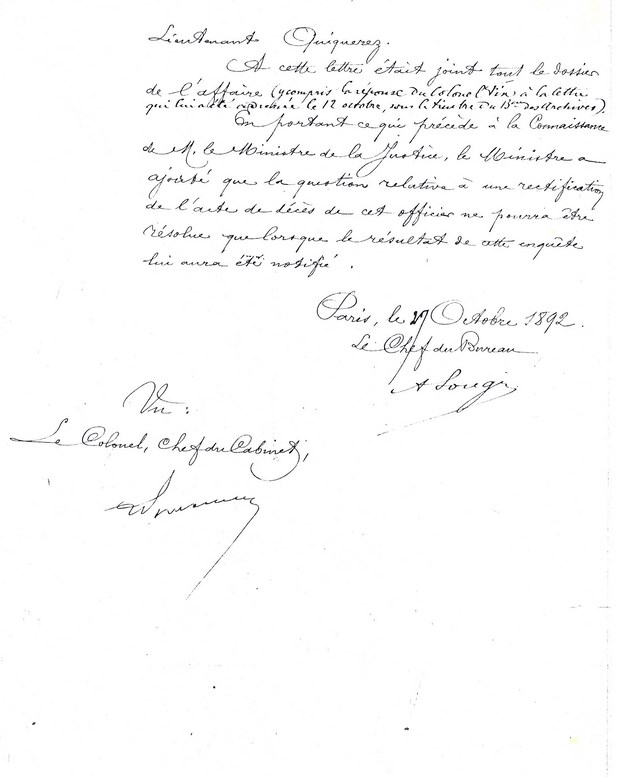 Lieutenant Quiquerez.
A cette lettre était joint tout le dossier
de l'affaire (y compris la réponse du Colonel Vix à la lettre
qui lui a été adressée le 12 octobre, sous le timbre du B.au des Archives).
En portant ce qui précède à la Connaissance
de M. le Ministre de la Justice, le Ministre a
ajouté que la question relative à une rectification
de l'acte de décès de cet officier ne pourra être
résolue que lorsque le résultat de cette enquête
lui aura été notifié.
Paris, le 27 Octobre 1892.
Le Chef du Bureau
Vu :
Le Colonel, Chef du Cabinet,